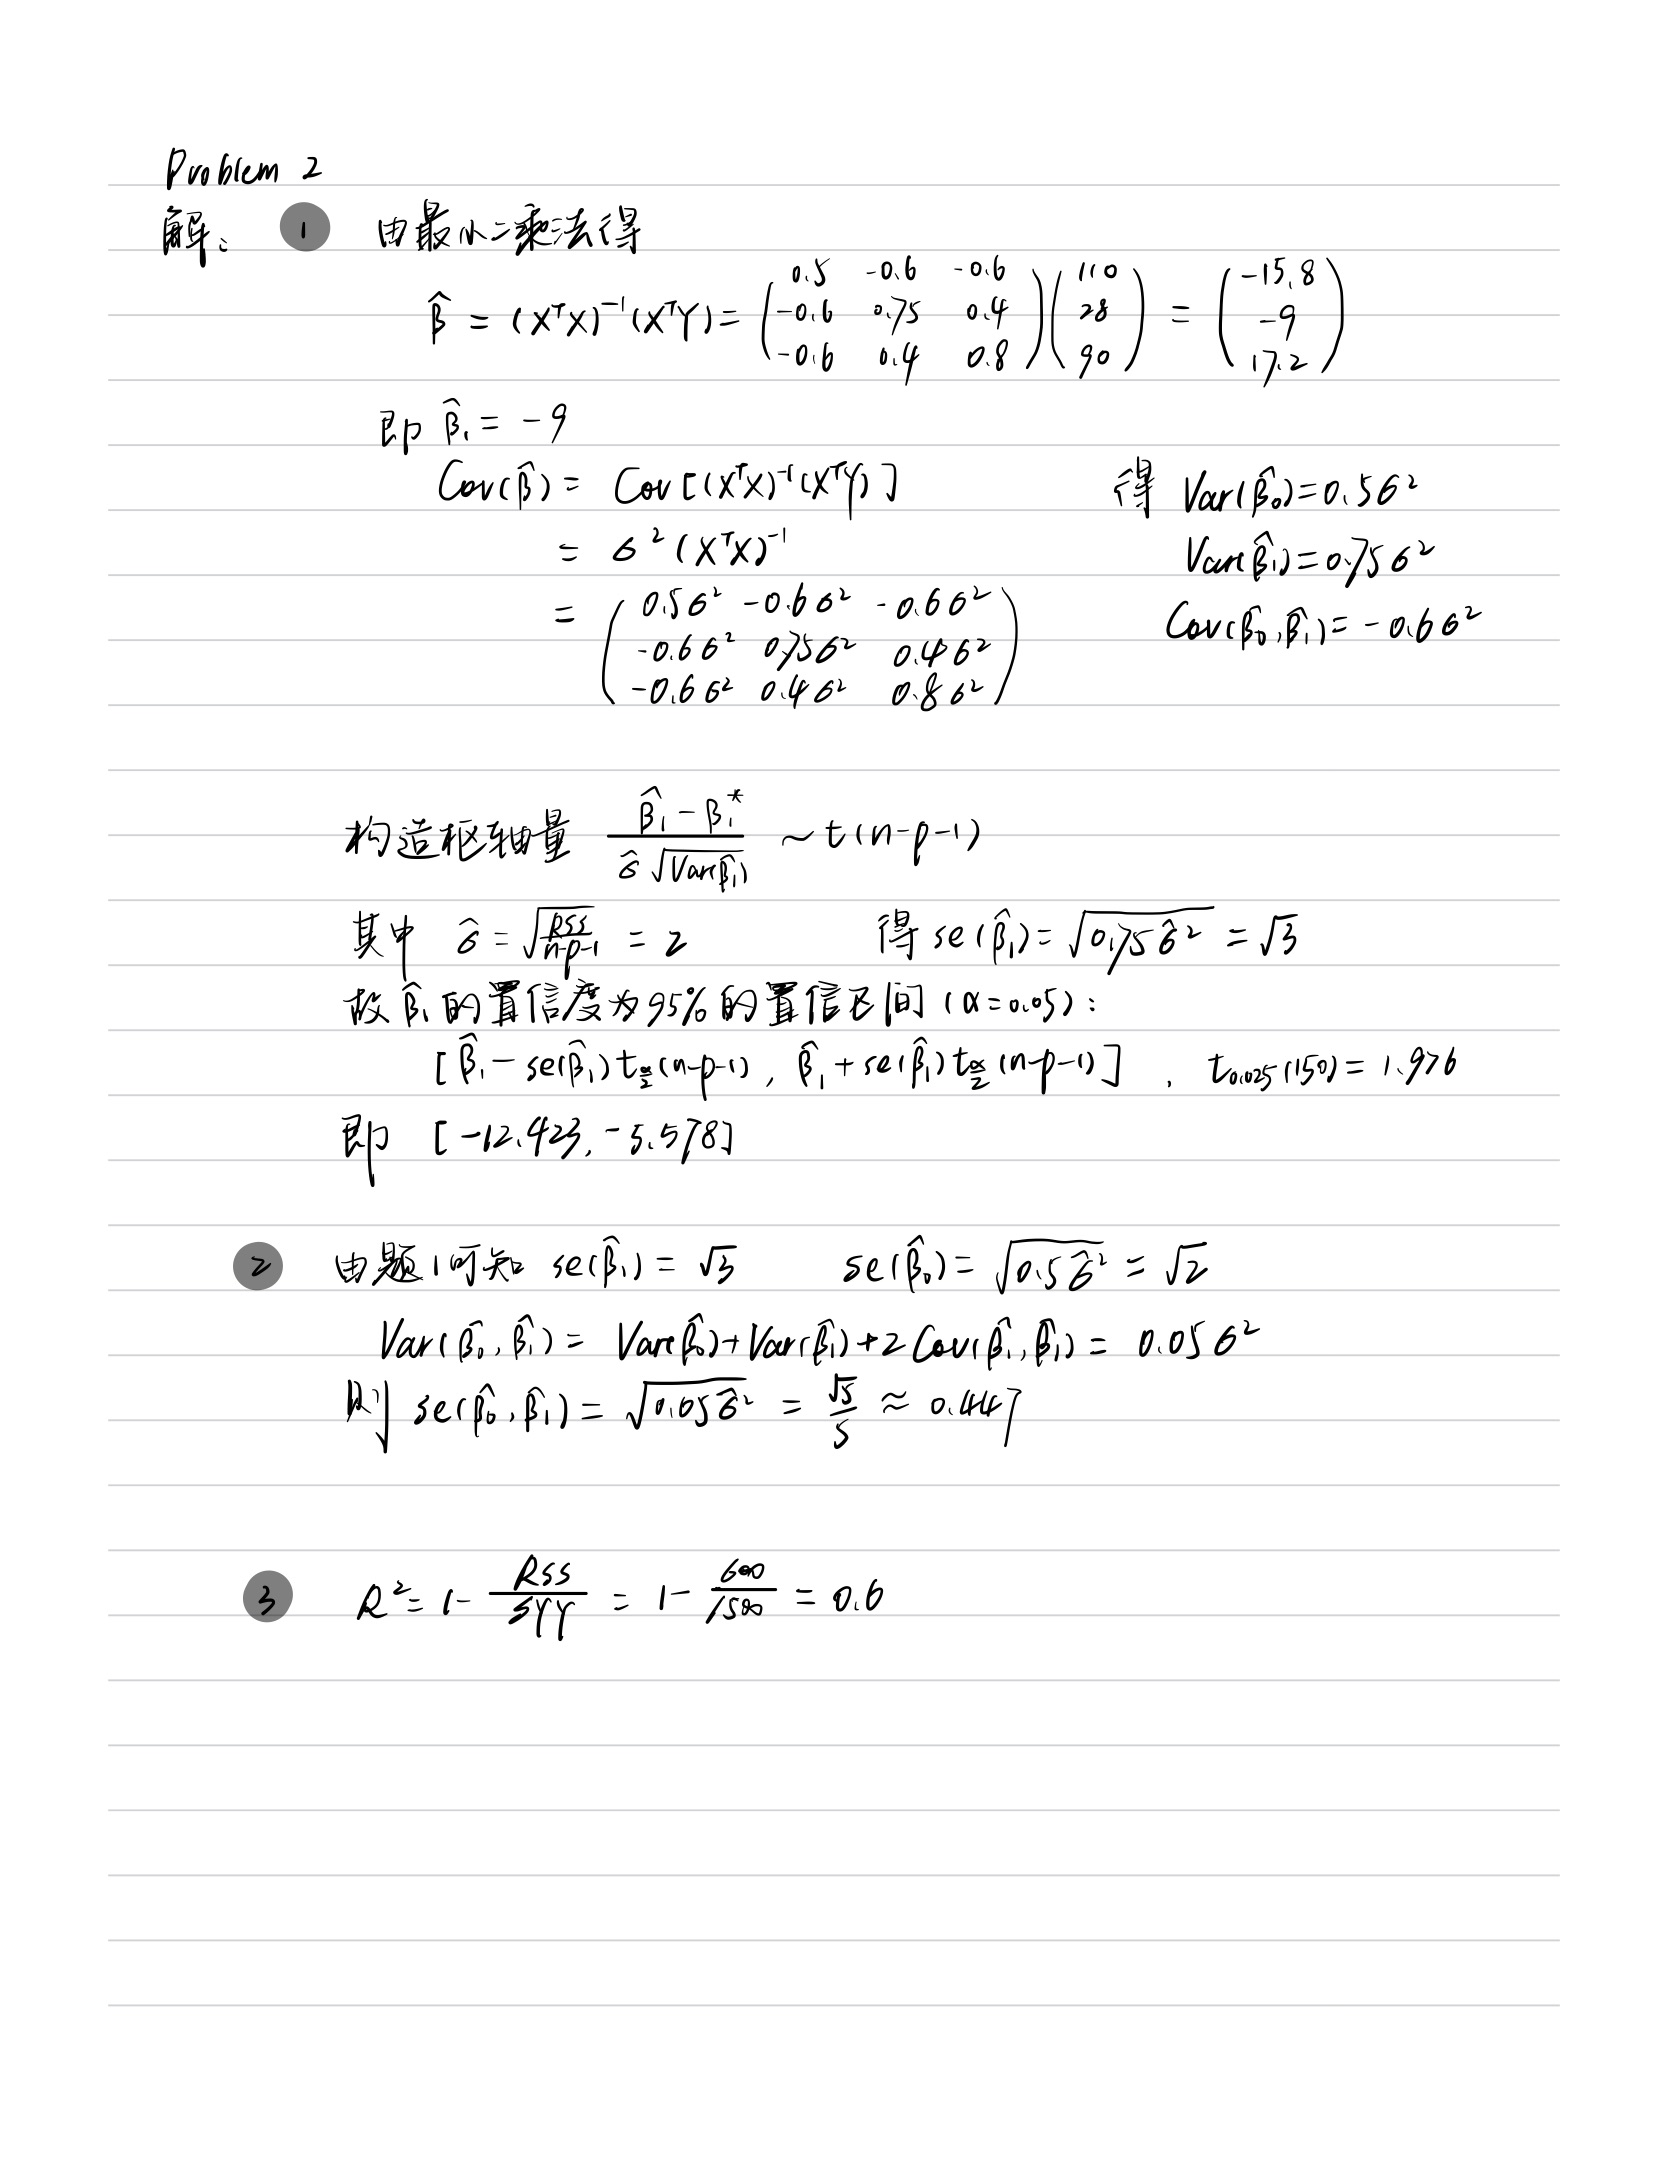 Problem 2
解: 1 由最小二乘法得
β̂ = (XᵀX)⁻¹(XᵀY) = (0.5 -0.6 -0.6; -0.6 0.75 0.4; -0.6 0.4 0.8)(110; 28; 90) = (-15.8; -9; 17.2)
即 β̂₁ = -9
Cov(β̂) = Cov[(XᵀX)⁻¹(XᵀY)] 得 Var(β̂₀)=0.5σ²
= σ²(XᵀX)⁻¹ Var(β̂₁)=0.75σ²
= (0.5σ² -0.6σ² -0.6σ²; -0.6σ² 0.75σ² 0.4σ²; -0.6σ² 0.4σ² 0.8σ²) Cov(β̂₀,β̂₁)=-0.6σ²
构造枢轴量 (β̂₁-β₁*)/(σ̂√Var(β̂₁)) ~ t(n-p-1)
其中 σ̂ = √(RSS/(n-p-1)) = 2 得 se(β̂₁) = √(0.75σ̂²) = √3
故β̂₁的置信度为95%的置信区间(α=0.05):
[β̂₁-se(β̂₁)t_{α/2}(n-p-1), β̂₁+se(β̂₁)t_{α/2}(n-p-1)], t₀.₀₂₅(150)=1.976
即 [-12.423, -5.578]
2 由题1可知 se(β̂₁) = √3 se(β̂₀) = √(0.5σ̂²) = √2
Var(β̂₀,β̂₁) = Var(β̂₀)+Var(β̂₁)+2Cov(β̂₁,β̂₁) = 0.05σ²
则 se(β̂₀,β̂₁) = √(0.05σ̂²) = √5/5 ≈ 0.447
3 R² = 1 - RSS/SYY = 1 - 600/1500 = 0.6